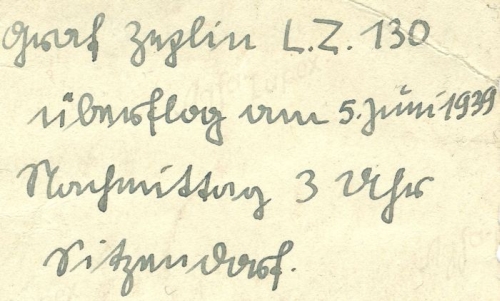 Graf Zeplin L.Z. 130
überflog am 5. Juni 1939
Nachmittag 3 Uhr
Sitzendorf.